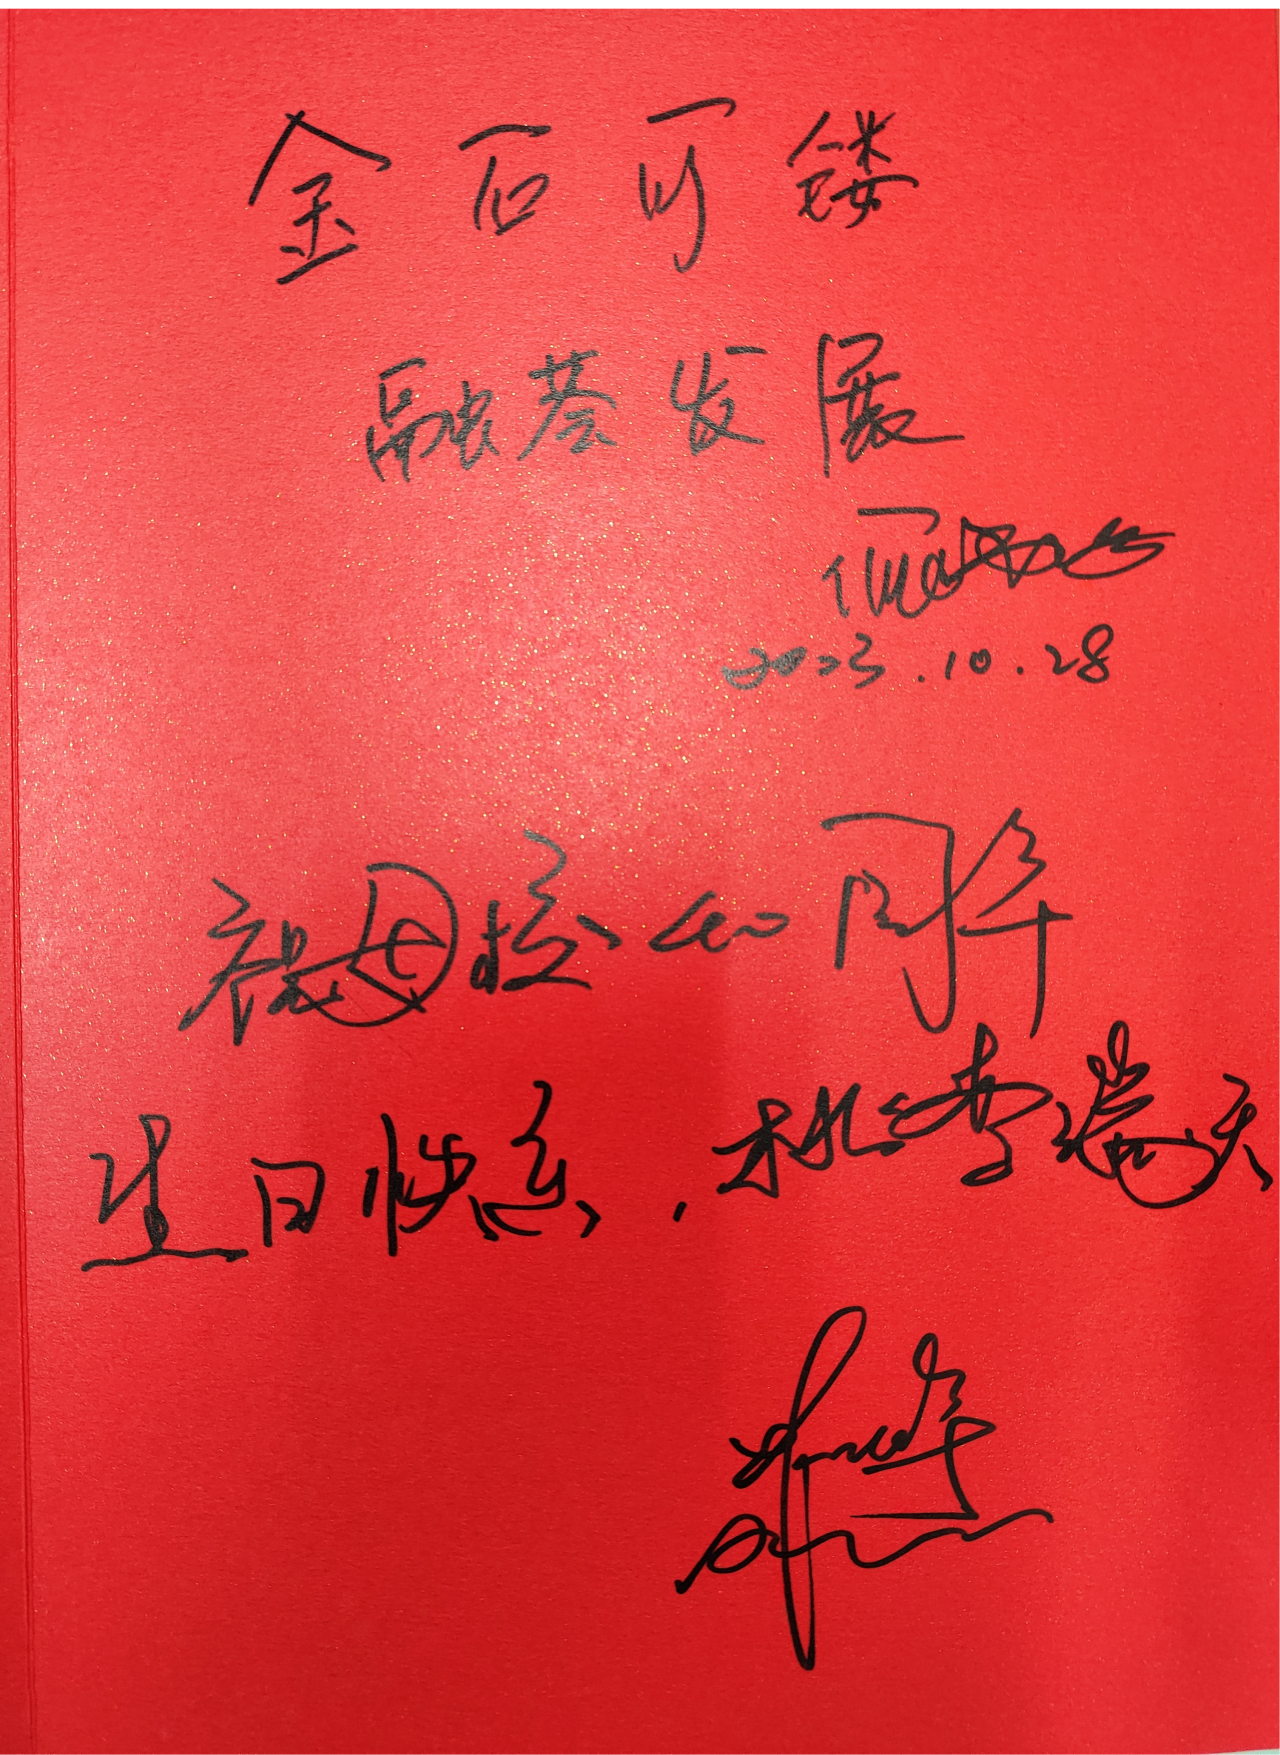 金石可镂
融荟发展
2023.10.28
祝母校40周年
生日快乐,桃李满天